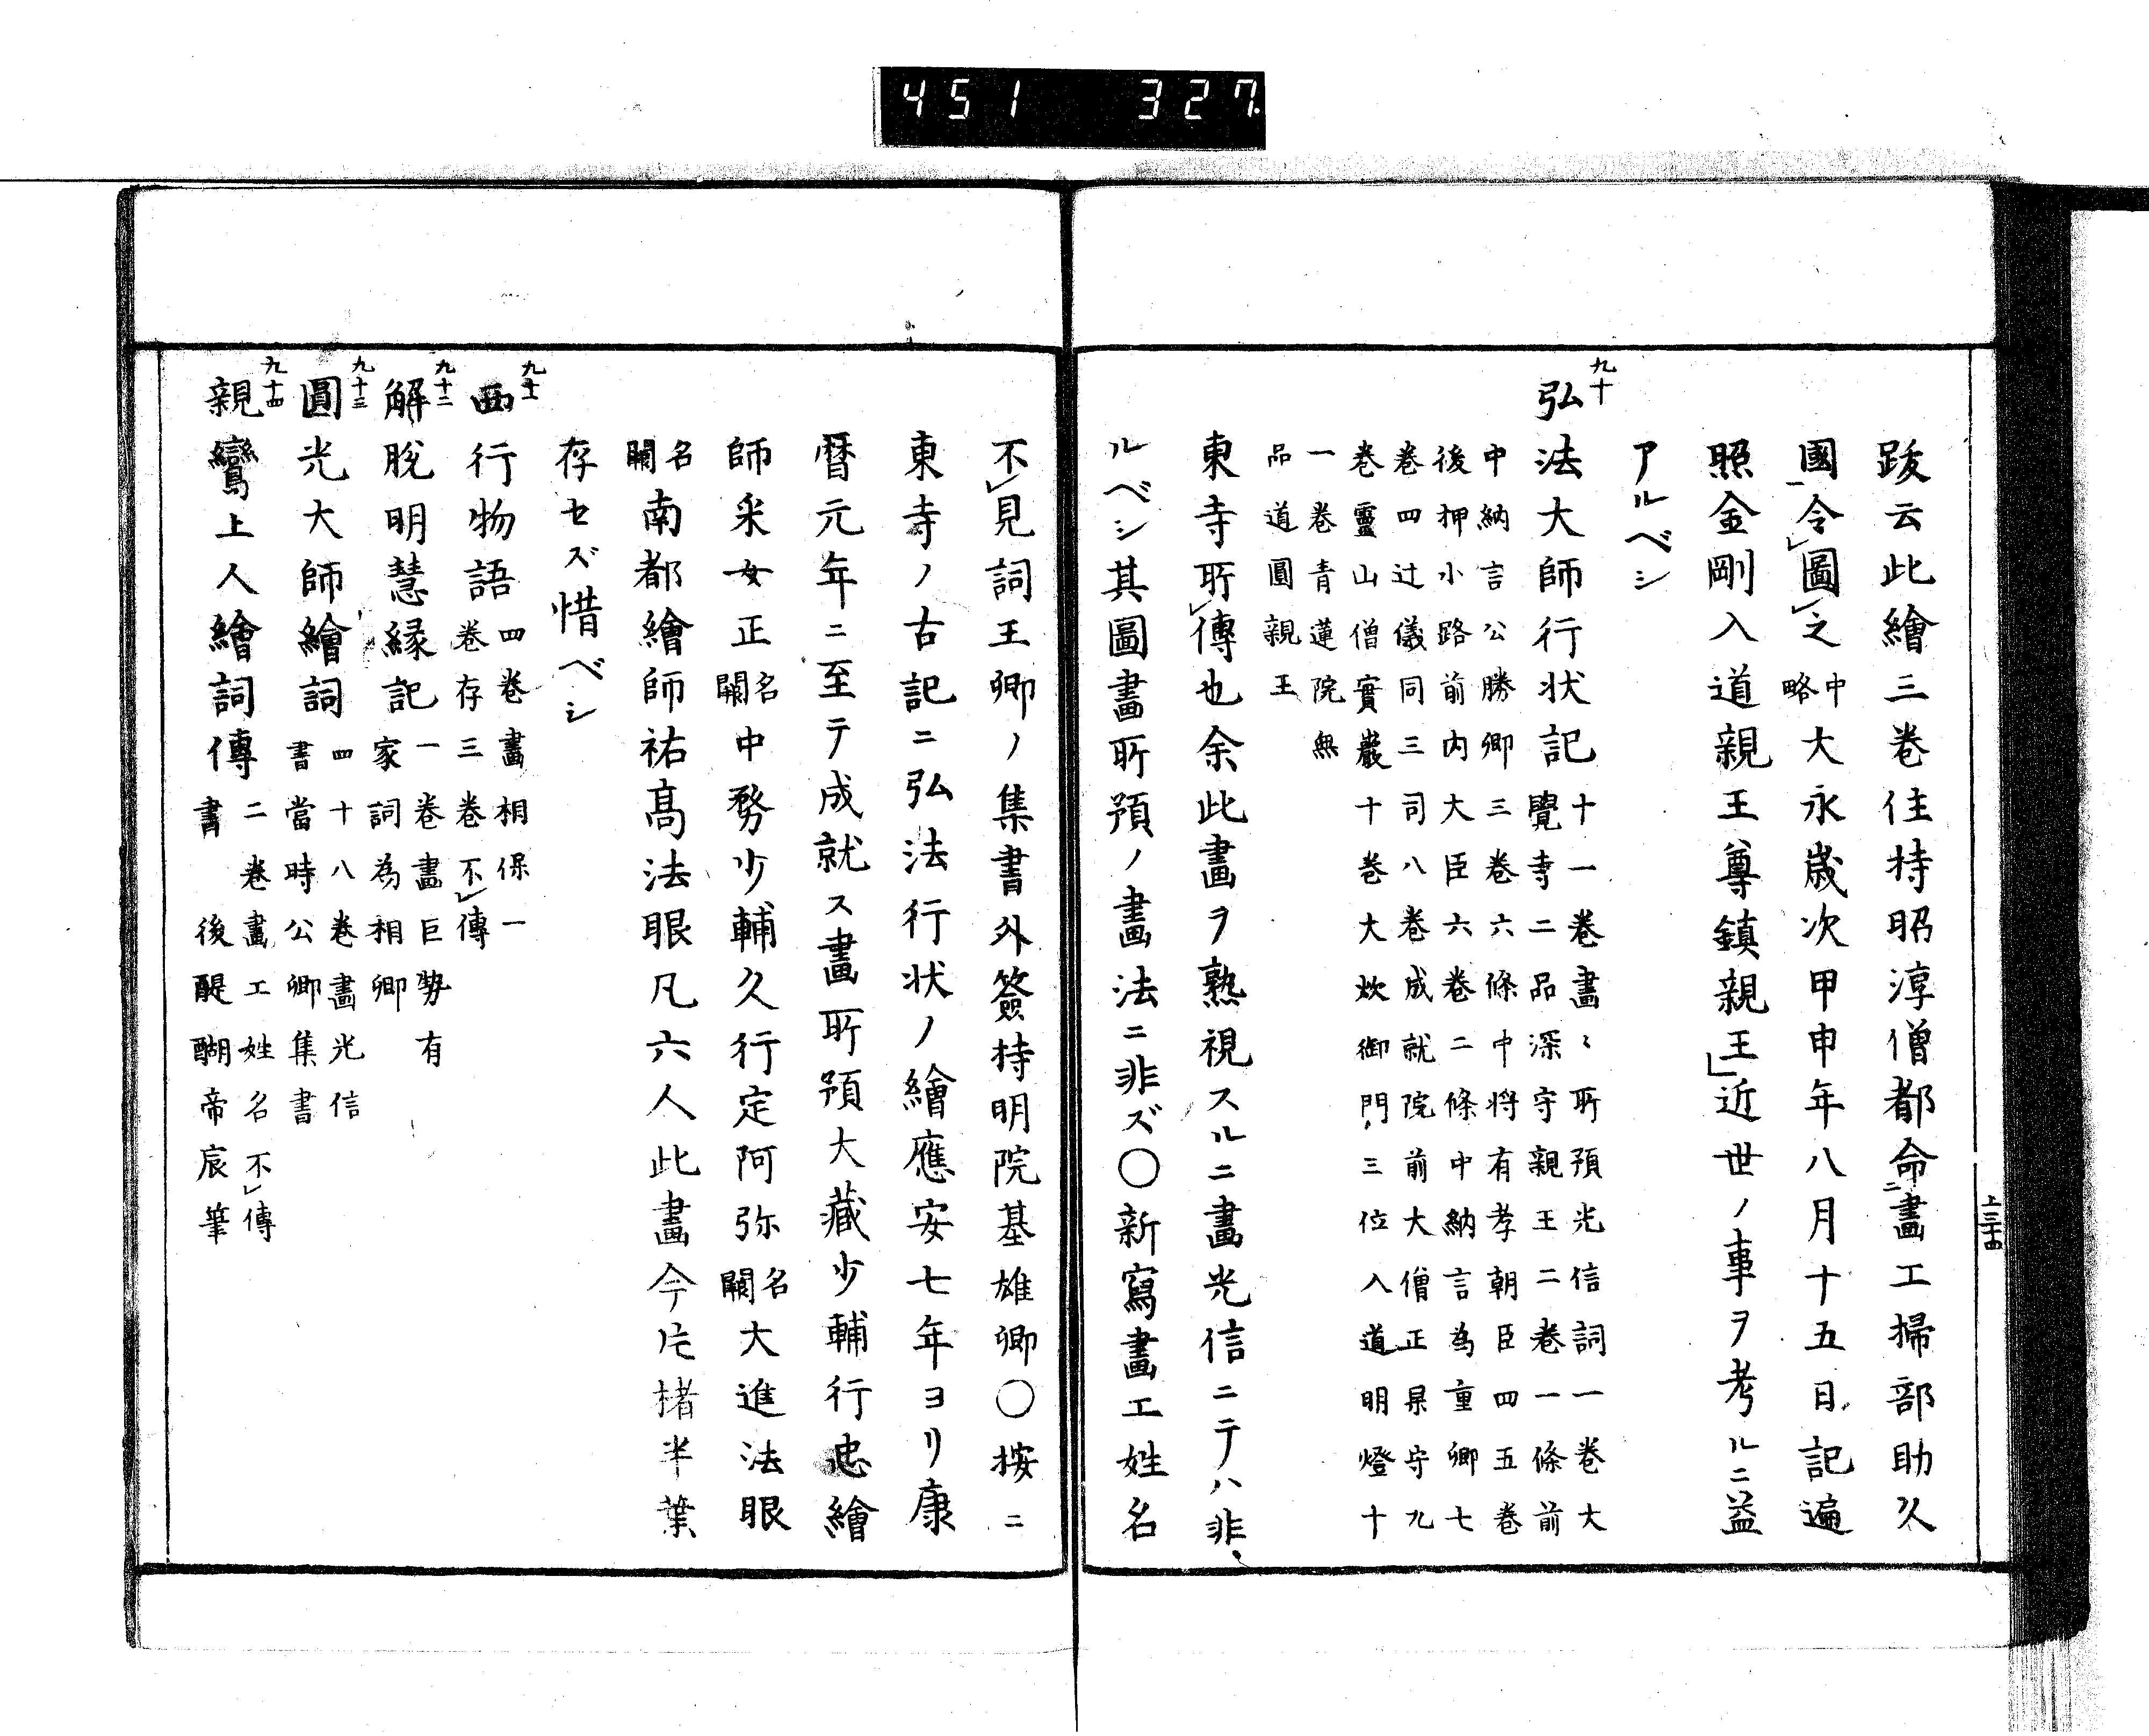 451 327
上三十四
跋云此繪三巻住持昭淳僧都命畫工掃部助久
國令圖之中略大永歳次甲申年八月十五日記遍
照金剛入道親王尊鎮親王近世ノ事ヲ考ルニ益
アルベシ
九十
弘法大師行状記十一巻畫々所預光信詞一巻大
覺寺二品深守親王二巻一條前
中納言公勝卿三巻六條中将有孝朝臣四五巻
後押小路前内大臣六巻二條中納言為重卿七
巻四辻儀同三司八巻成就院前大僧正杲守九
巻靈山僧實巖十巻大炊御門三位入道明燈十
一巻青蓮院無
品道圓親王
東寺所傳也余此畫ヲ熟視スルニ畫光信ニテハ非
ルベシ其圖畫所預ノ畫法ニ非ズ〇新寫畫工姓名
不見詞王卿ノ集書外簽持明院基雄卿〇按ニ
東寺ノ古記ニ弘法行状ノ繪應安七年ヨリ康
暦元年ニ至テ成就ス畫所預大藏少輔行忠繪
師采女正名闕中務少輔久行定阿弥名闕大進法眼
名闕南都繪師祐高法眼凡六人此畫今片楮半葉
存セズ惜ベシ
九十一
西行物語四巻畫相保一
巻存三巻不傳
九十二
解脱明慧縁記一巻畫巨勢有
家詞為相卿
九十三
圓光大師繪詞四十八巻畫光信
書當時公卿集書
九十四
親鸞上人繪詞傳二巻畫工姓名不傳
書後醍醐帝宸筆